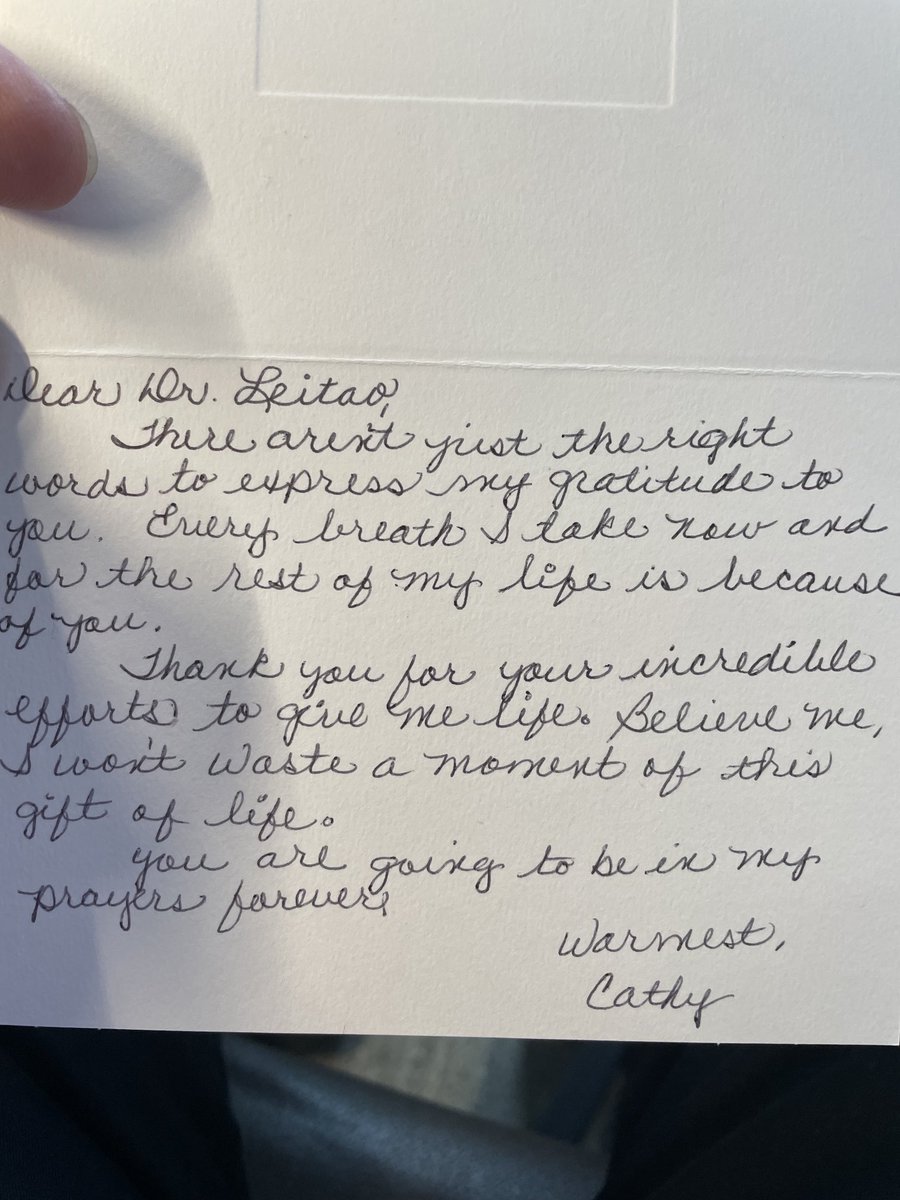 Dear Dr. Leitao,
There aren't just the right
words to express my gratitude to
you. Every breath I take now and
for the rest of my life is because
of you.
Thank you for your incredible
efforts to give me life. Believe me,
I won't waste a moment of this
gift of life.
You are going to be in my
prayers forever.
Warmest,
Cathy